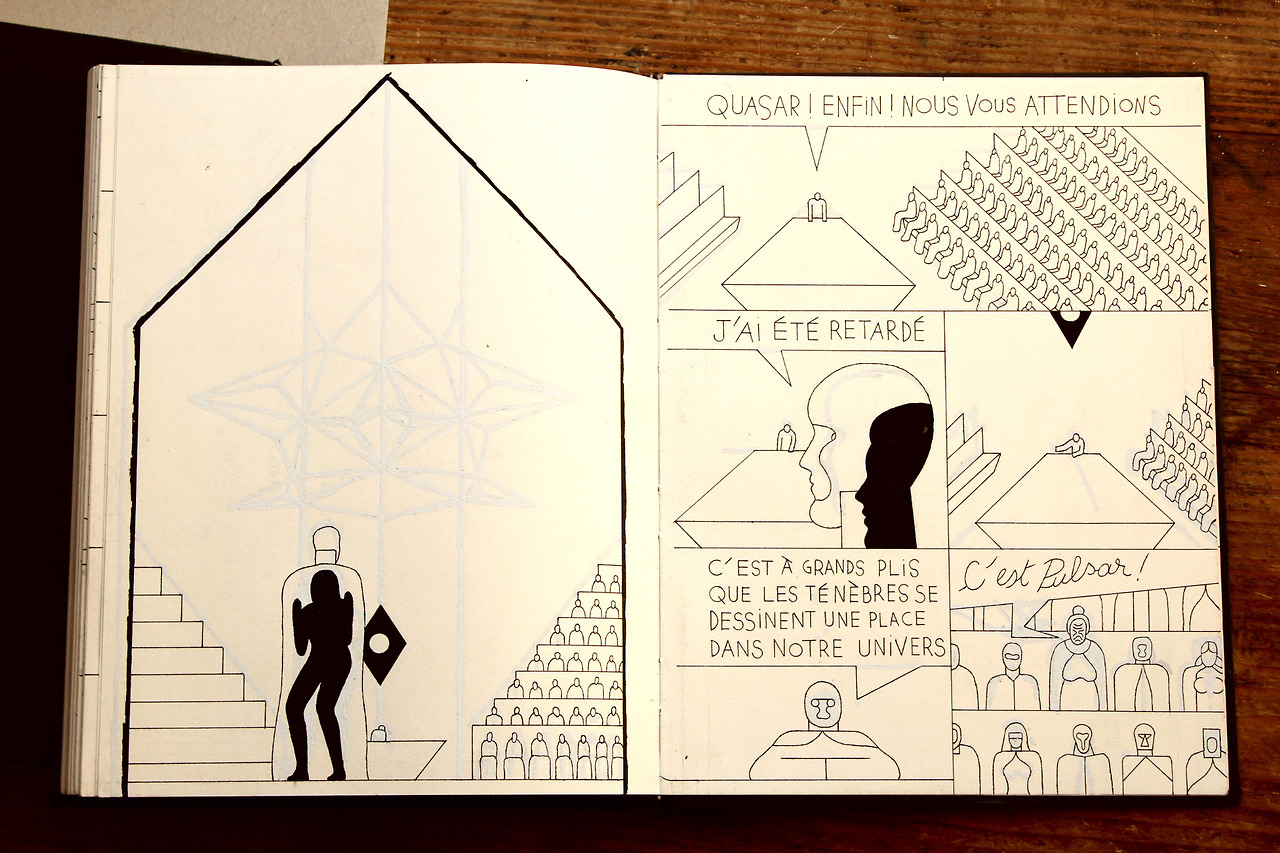 QUASAR! ENFIN! NOUS VOUS ATTENDIONS
J'AI ÉTÉ RETARDÉ
C'EST À GRANDS PLIS
QUE LES TÉNÈBRES SE
DESSINENT UNE PLACE
DANS NOTRE UNIVERS
C'est Pulsar!